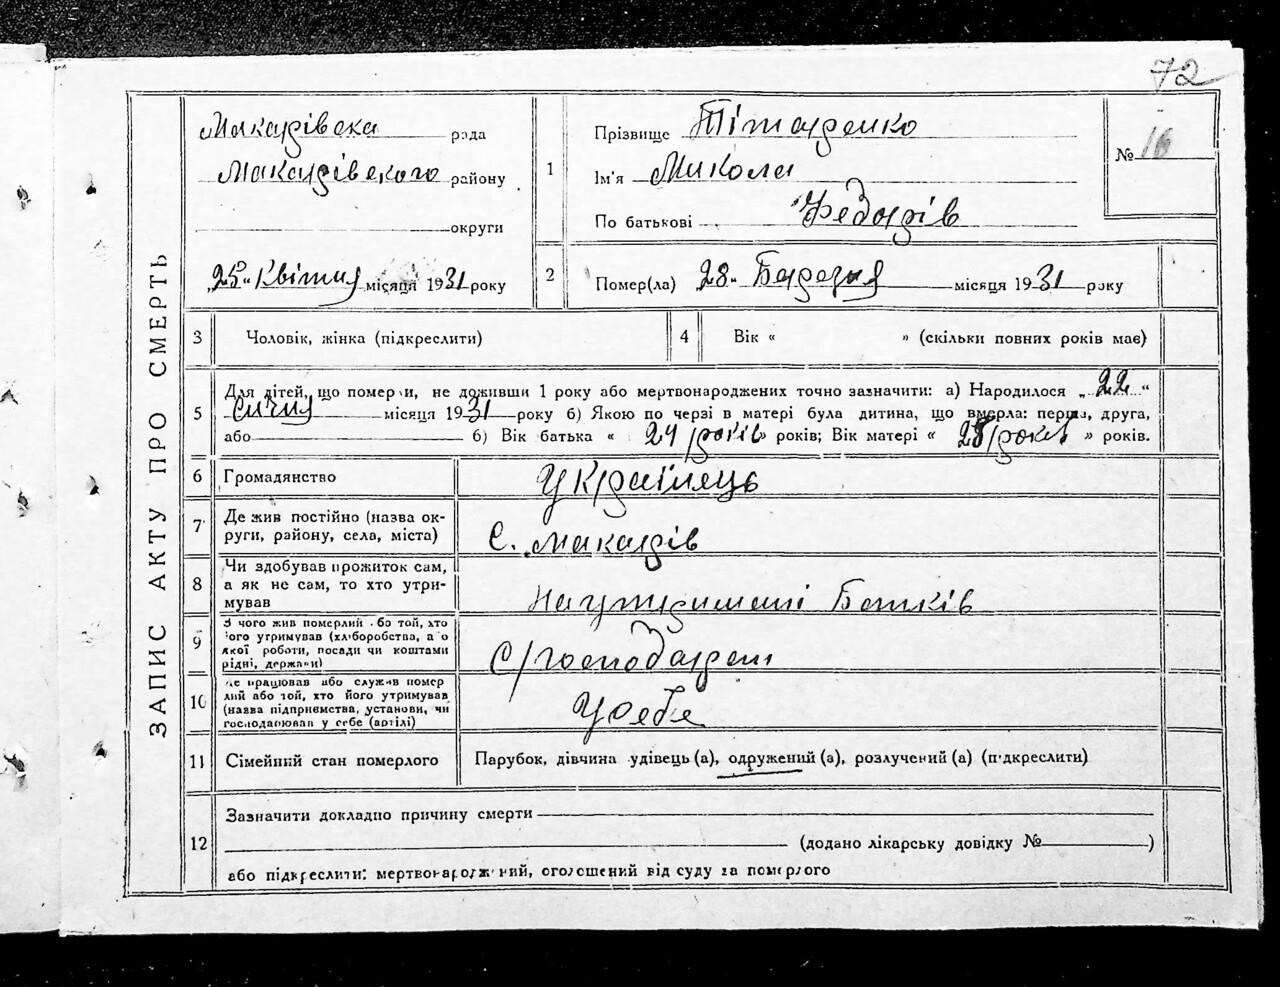 72
ЗАПИС АКТУ ПРО СМЕРТЬ
Макарівська рада
Макарівського району
округи
"25" Квітня місяця 1931 року
1
Прізвище Тітаренко
Ім'я Микола
По батькові Федорів
№ 16
2
Помер(ла) 28" Березня місяця 1931 року
3
Чоловік, жінка (підкреслити)
4
Вік « » (скільки повних років має)
5
Для дітей, що померли, не доживши 1 року або мертвонароджених точно зазначити: а) Народилося „22“
Січня місяця 1931 року б) Якою по черзі в матері була дитина, що вмерла: перша, друга,
або б) Вік батька « 24 років» років; Вік матері « 25 років » років.
6
Громадянство
Українець
7
Де жив постійно (назва ок-
руги, району, села, міста)
С. Макарів
8
Чи здобував прожиток сам,
а як не сам, то хто утри-
мував
На утриманні Батьків
9
З чого жив померлий або той, хто
його утримував (хліборобства, або
якої роботи, посади чи коштами
рідні, держави)
С/господарем
10
Де працював або служив помер
лий або той, хто його утримував
(назва підприємства, установи, чи
господарював у себе (артілі)
У себе
11
Сімейний стан померлого
Парубок, дівчина удівець (а), одружений (а), розлучений (а) (підкреслити)
12
Зазначити докладно причину смерти
(додано лікарську довідку № )
або підкреслити: мертвонароджений, оголошений від суду за померлого